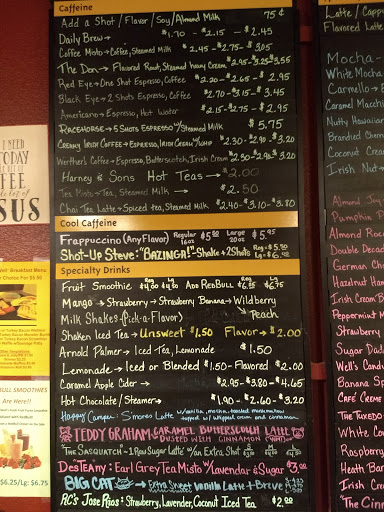 Caffeine
Add a Shot/Flavor/Soy/Almond Milk 75¢
Daily Brew → $1.70 - $2.15 - $2.45
Coffee Moto → Coffee, Steamed Milk $2.45 - $2.75 - $3.05
The Don → Flavored Roast, Steamed Heavy Cream $2.95 - $3.25 $3.55
Red Eye → One Shot Espresso, Coffee $2.20 - $2.65 - $2.95
Black Eye → 2 Shots Espresso, Coffee $2.70 - $3.15 - $3.45
Americano → Espresso, Hot Water $2.15 - $2.75 - $2.95
Racehorse → 5 Shots Espresso w/Steamed Milk $5.75
Creamy Irish Coffee → Espresso, Irish Cream Yump $2.30 - $2.90 - $3.20
Werther's Coffee → Espresso, Butterscotch, Irish Cream $2.30 - $2.90 - $3.20
Harney & Sons Hot Teas → $2.00
Tea Misto → Tea, Steamed Milk → $2.50
Chai Tea Latte → Spiced tea, Steamed Milk $2.40 - $3.10 - $3.80
Cool Caffeine
Frappuccino (Any Flavor) Regular 16oz $5.00 Large 20oz $5.95
Shot-Up Steve: "BAZINGA!" Shake + 2 Shots Reg - $5.50
Lg - $6.45
Specialty Drinks
Fruit Smoothie Reg $4.00 Lg $4.80 Add Red Bull Reg $6.25 Lg $6.75
Mango → Strawberry → Strawberry Banana → Wildberry
Milk Shakes (Pick-a-Flavor) Peach
Shaken Iced Tea → Unsweet $1.50 Flavor → $2.00
Arnold Palmer → Iced Tea, Lemonade $1.50
Lemonade → Iced or Blended $1.50 - Flavored $2.00
Caramel Apple Cider → $2.95 - $3.80 - $4.65
Hot Chocolate/Steamer → $1.90 - $2.60 - $3.20
Happy Camper: S'mores Latte → Vanilla, mocha, toasted marshmallow,
topped w/ whipped cream and cinnamon
TEDDY GRAHAM CARAMEL BUTTERSCOTCH LATTE
DUSTED WITH CINNAMON
The Sasquatch → 1 Raw Sugar Latte w/ an Extra Shot
DesTeany: Earl Grey Tea Misto w/ Lavendar & Sugar $3.00
BIG CAT → Extra Sweet Vanilla Latte + Breve
RC's Jose Rojos: Strawberry, Lavender, Coconut Iced Tea $2.00
I NEED
TODAY
FEE
SUS
Breakfast Menu
SMOOTHIES
Are Here!!
$6.25/Lg: $6.75
Latte/Capp
Flavored Latte
Mocha
White Mocha
Carmello
Caramel Macchi
Nutty Hawaiian
Brandied Cherr
Coconut Crea
Irish Cream
Almond Joy
Pumpkin
Almond Roca
Double Deca
German Cho
Hazelnut
Irish Cream
Peppermint M
Strawberry
Sugar Dad
Well's Cand
Banana Sp
Café Crème
The Tuxedo
White Coc
Raspberry
Heath Bar
Irish Cream
"The Cin